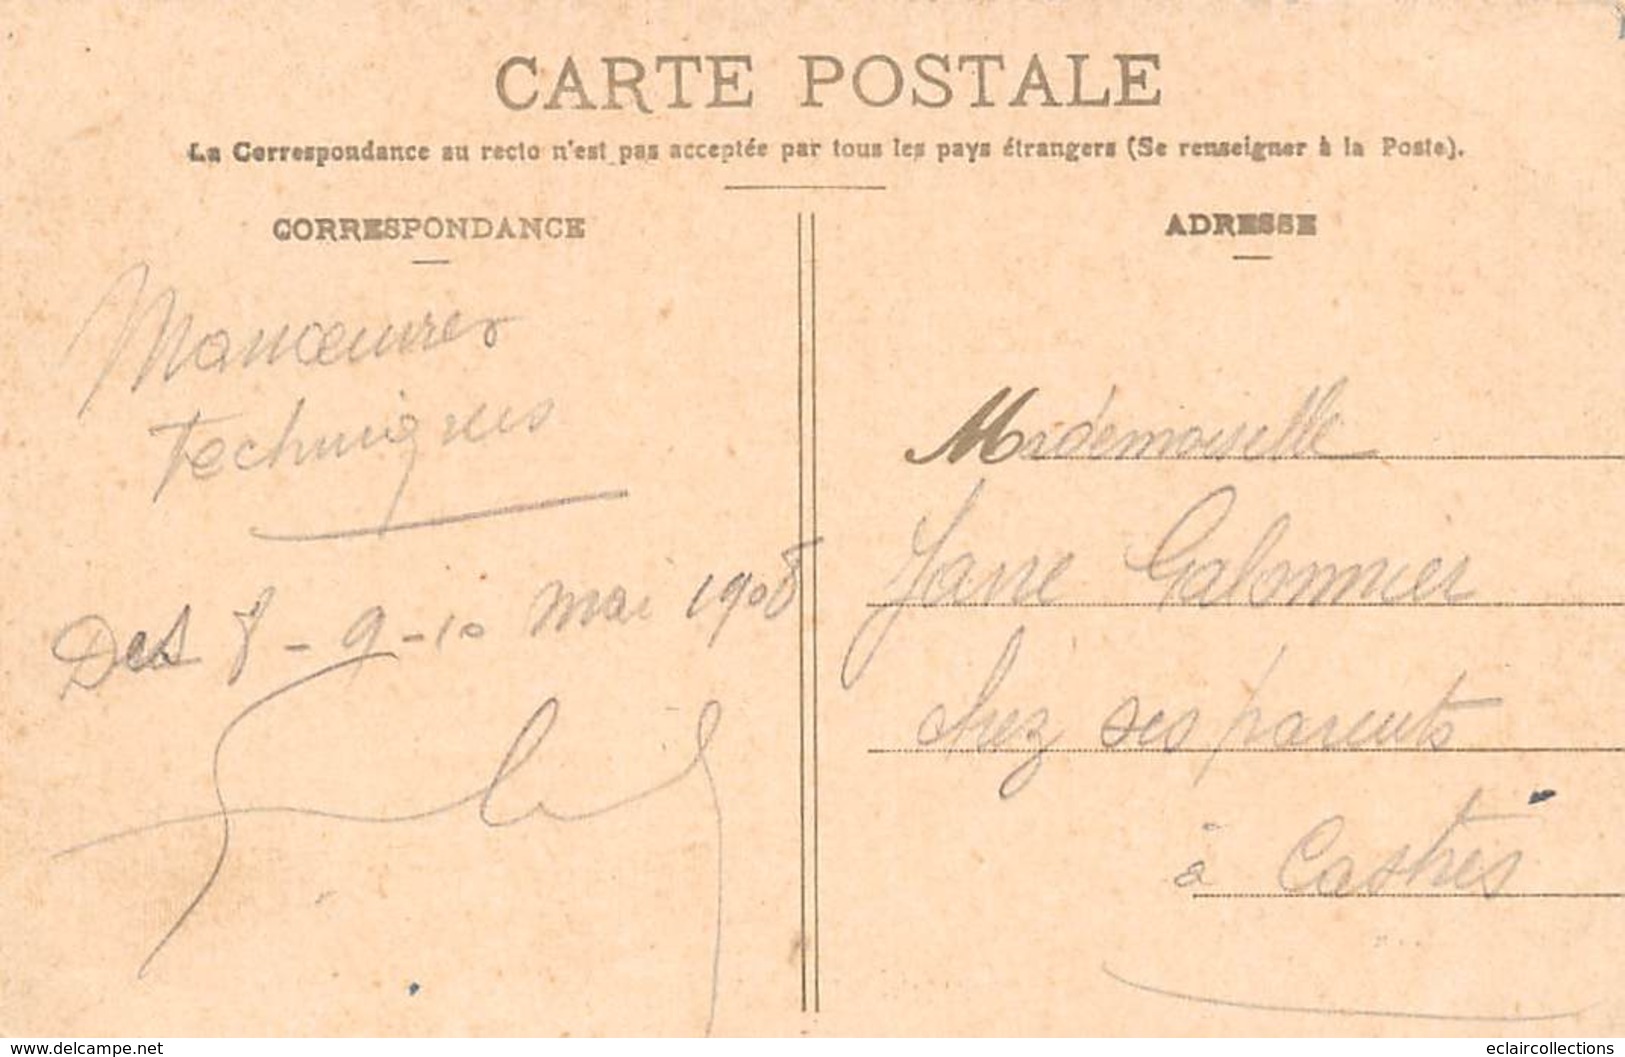 CARTE POSTALE
La Correspondance au recto n'est pas acceptée par tous les pays étrangers (Se renseigner à la Poste).
CORRESPONDANCE
Manœuvres
Techniques
Des 8 - 9 - 10 mai 1908
ADRESSE
Mademoiselle
Jane Galonnier
chez ses parents
à Castres
www.delcampe.net
eclaircollections